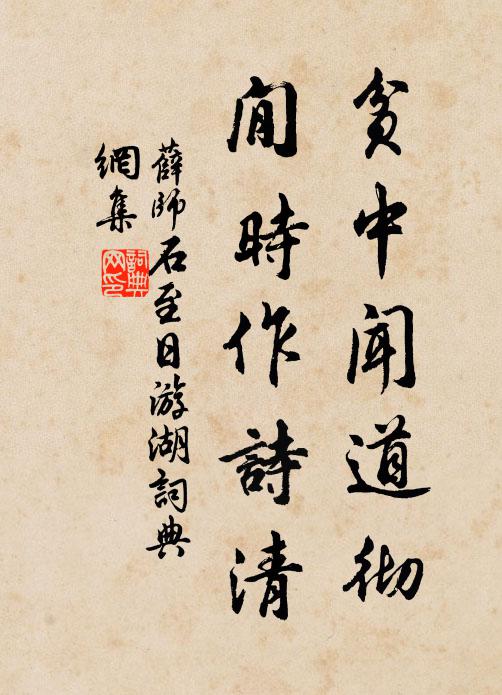 貧中聞道彻
閒時作詩清
薛師石至日游湖詞典
網集
詞典
网印